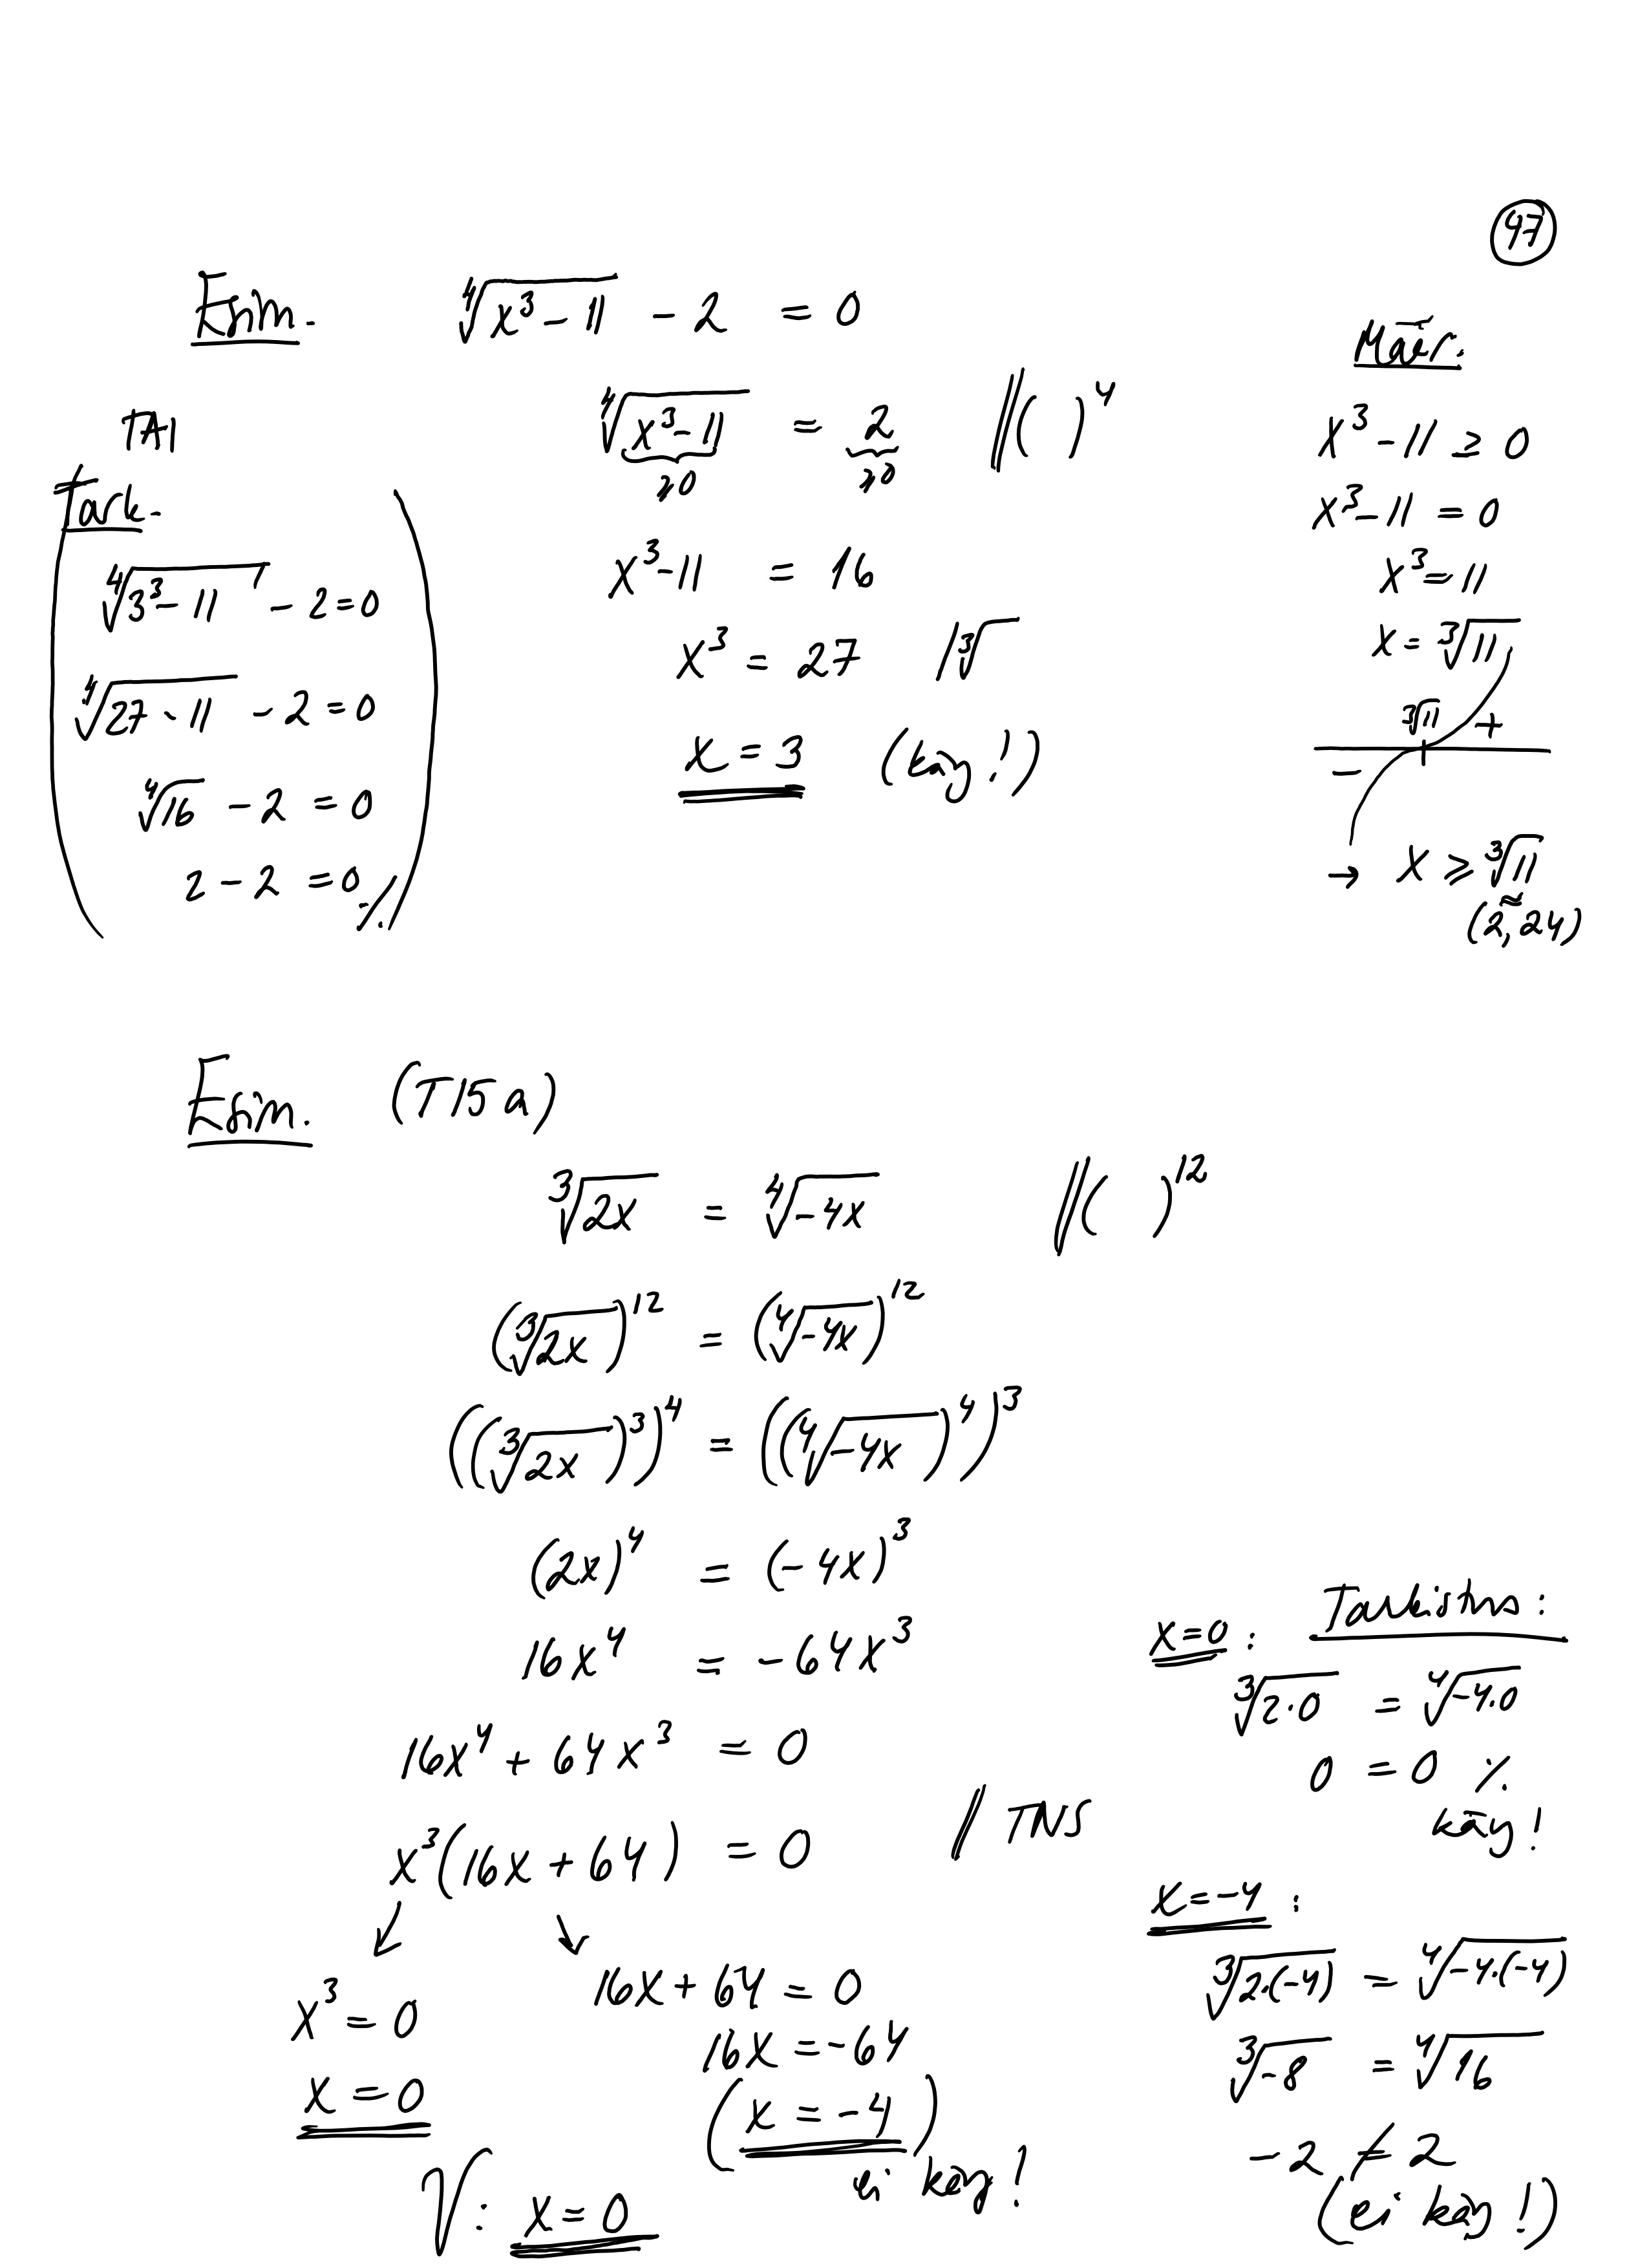 47
Esim. ∜(x³ - 11) - 2 = 0
∜(x³ - 11) = 2 ||( )⁴
≥0 ≥0
x³ - 11 = 16
x³ = 27 |∛
x = 3 (käy!)
TAI
Tark.
∜(3³ - 11) - 2 = 0
∜(27 - 11) - 2 = 0
∜16 - 2 = 0
2 - 2 = 0 ·/.
Määr:
x³ - 11 ≥ 0
x³ - 11 = 0
x³ = 11
x = ∛11
∛11 +
-
→ x ≥ ∛11
≈
(2,24)
Esim. (T15a)
∛(2x) = ∜(-4x) ||( )¹²
(∛(2x))¹² = (∜(-4x))¹²
((∛(2x))³)⁴ = ((∜(-4x))⁴)³
(2x)⁴ = (-4x)³
16x⁴ = -64x³
16x⁴ + 64x³ = 0
x³(16x + 64) = 0 || TNS
↙ ↘
x³ = 0
x = 0
16x + 64 = 0
16x = -64
(x = -4)
ei käy!
V: x = 0
Tarkistus:
x = 0 :
∛(2·0) = ∜(-4·0)
0 = 0 ·/.
käy!
x = -4 :
∛(2·(-4)) = ∜(-4·(-4))
∛-8 = ∜16
-2 ≠ 2
(ei käy!)